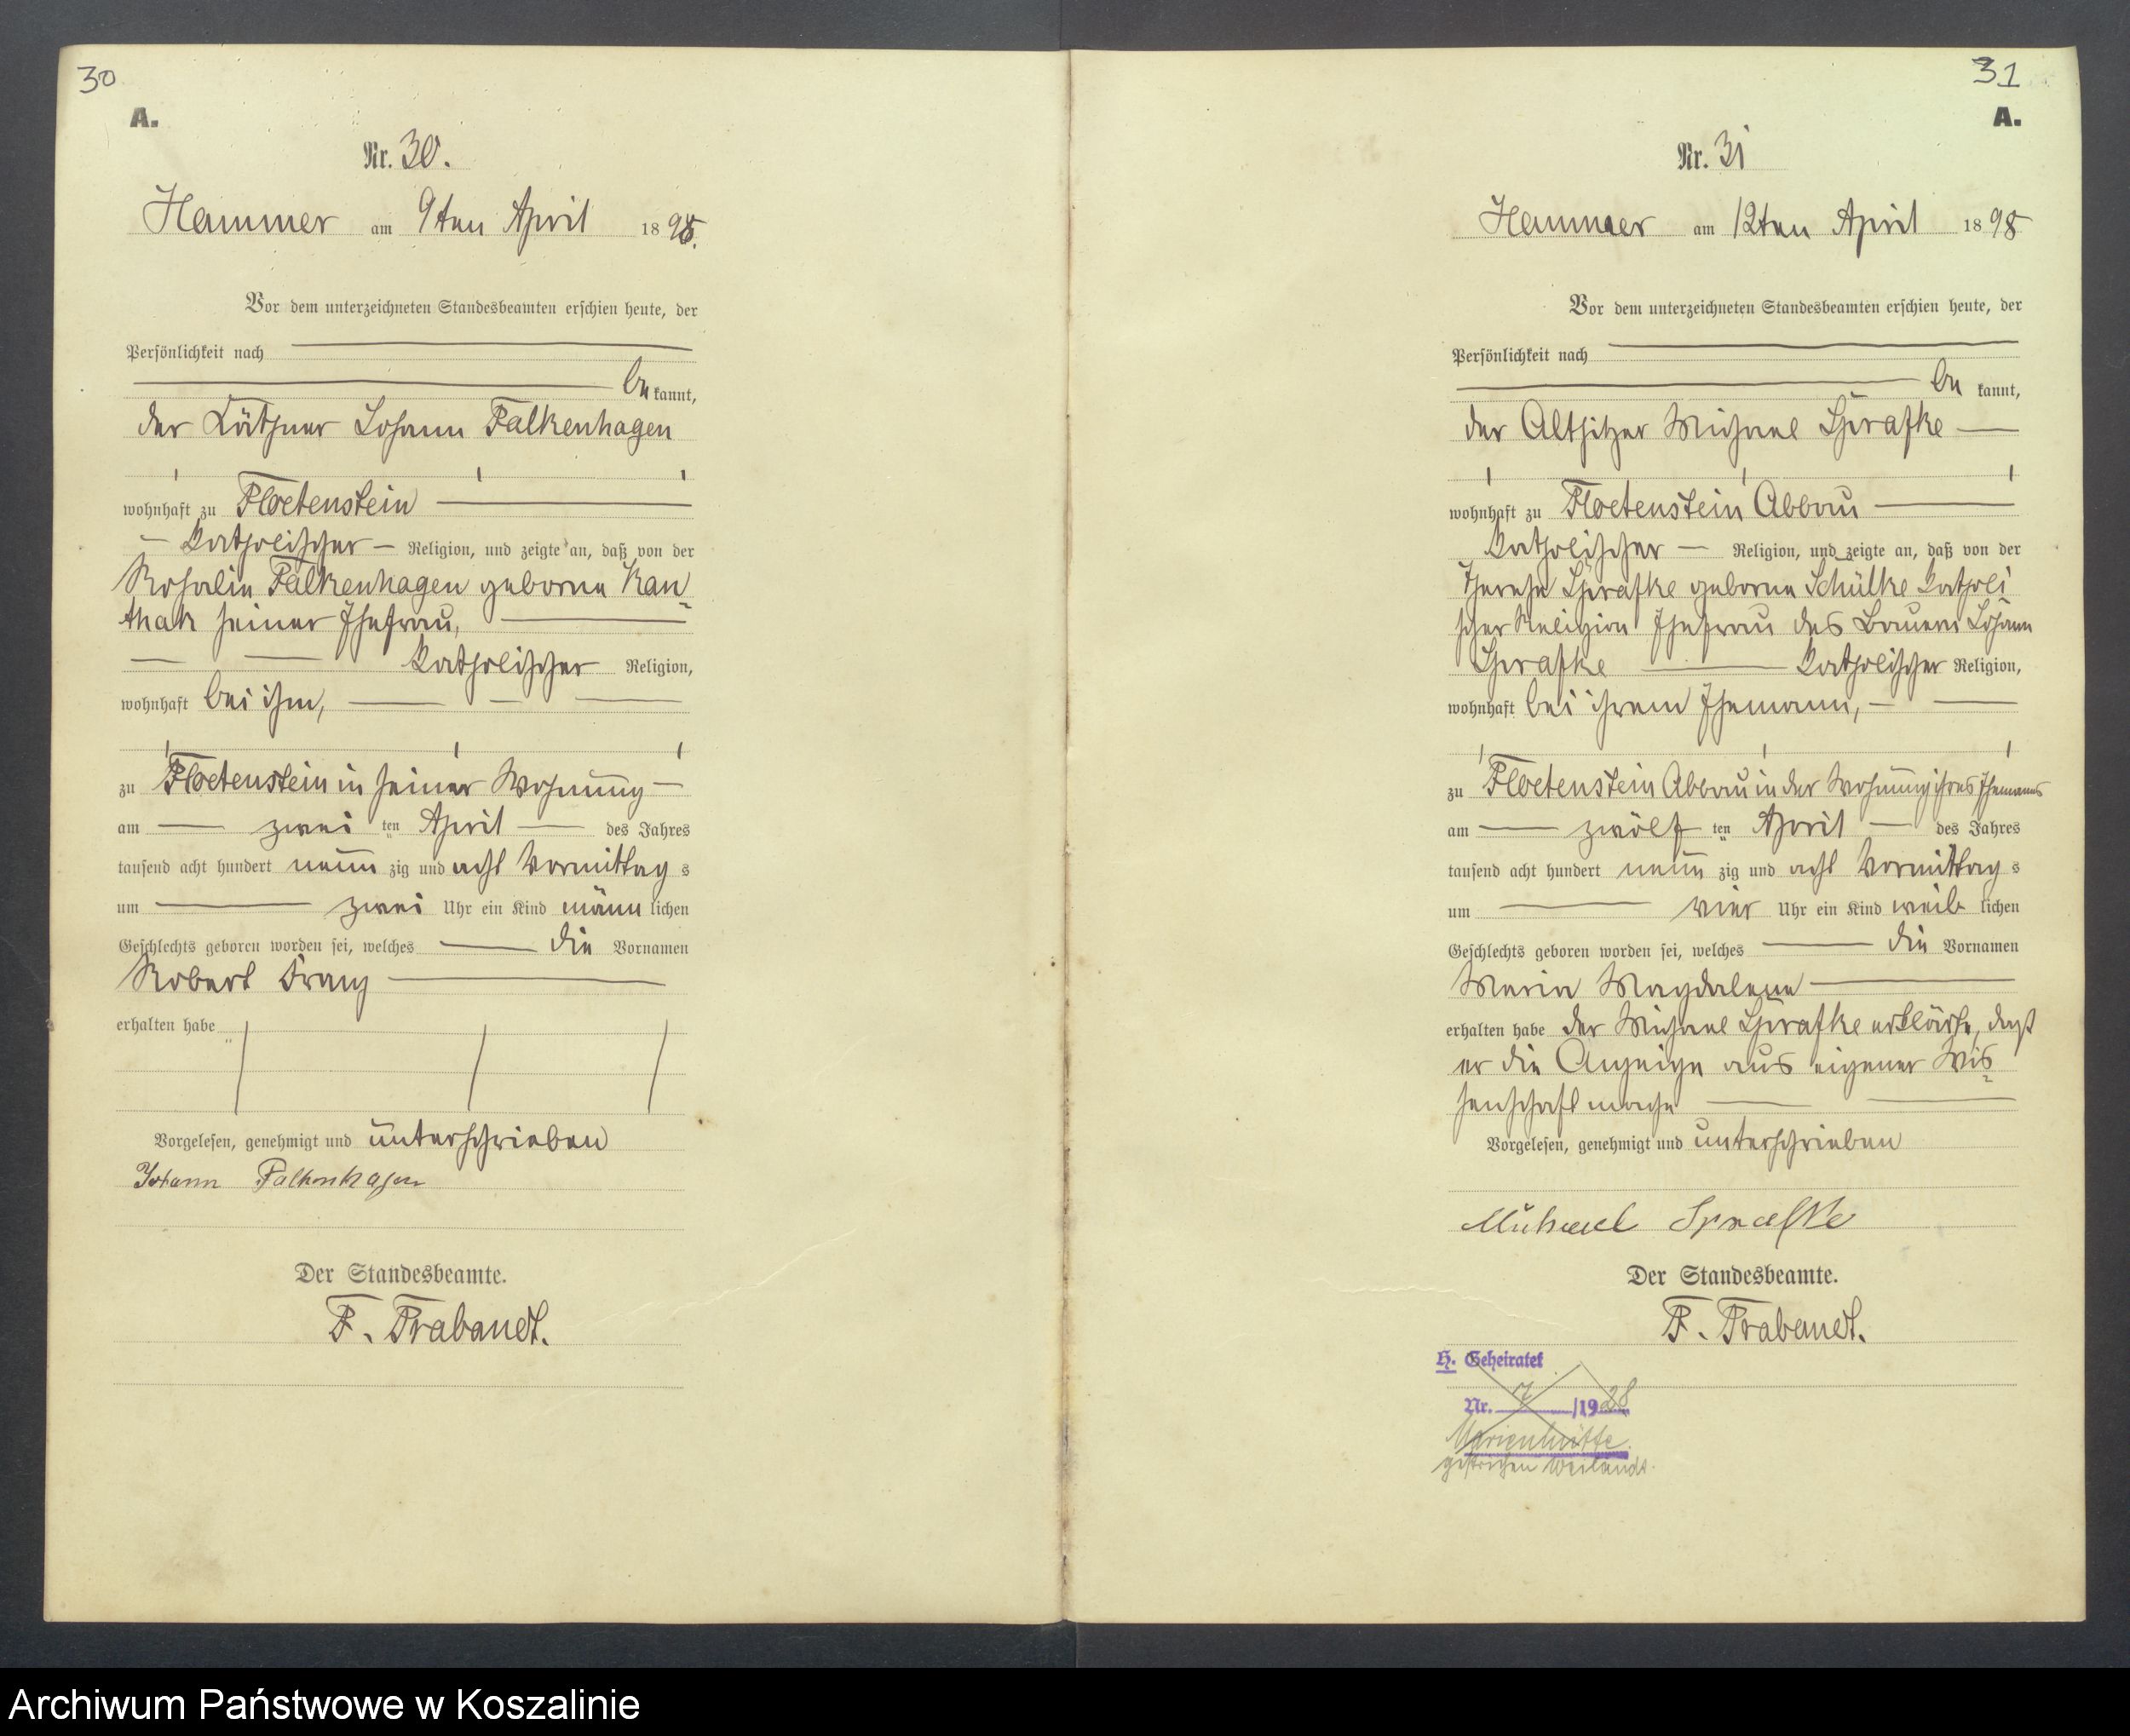 30
A.
Nr. 30.
Hammer am 9ten April 1898.
Vor dem unterzeichneten Standesbeamten erschien heute, der
Persönlichkeit nach
be kannt,
der Käthner Johann Falkenhagen
wohnhaft zu Floetenstein
katholischer Religion, und zeigte an, daß von der
Rosalie Falkenhagen geborne Kan
thak seiner Ehefrau,
katholischer Religion,
wohnhaft bei ihm,
zu Floetenstein in seiner Wohnung
am zwei ten April des Jahres
tausend acht hundert neun zig und acht Vormittag s
um zwei Uhr ein Kind männ lichen
Geschlechts geboren worden sei, welches die Vornamen
Robert Franz
erhalten habe
Vorgelesen, genehmigt und unterschrieben
Johann Falkenhagen
Der Standesbeamte.
F. Trabandt.
31
A.
Nr. 31
Hammer am 12ten April 1898
Vor dem unterzeichneten Standesbeamten erschien heute, der
Persönlichkeit nach
be kannt,
der Altsitzer Michael Sprafke
wohnhaft zu Floetenstein Abbau
katholischer Religion, und zeigte an, daß von der
Therese Sprafke geborne Schülke katholi
scher Religion Ehefrau des Bauern Johann
Sprafke katholischer Religion,
wohnhaft bei ihrem Ehemann,
zu Floetenstein Abbau in der Wohnung ihres Ehemanns
am zwölf ten April des Jahres
tausend acht hundert neun zig und acht Vormittag s
um vier Uhr ein Kind weib lichen
Geschlechts geboren worden sei, welches die Vornamen
Maria Magdalene
erhalten habe der Michael Sprafke erklärte, daß
er die Anzeige aus eigener Wis
senschaft mache
Vorgelesen, genehmigt und unterschrieben
Michael Sprafke
Der Standesbeamte.
F. Trabandt.
H. Geheiratet
Nr. 7 /1928
Marienhütte
gestrichen
Archiwum Państwowe w Koszalinie